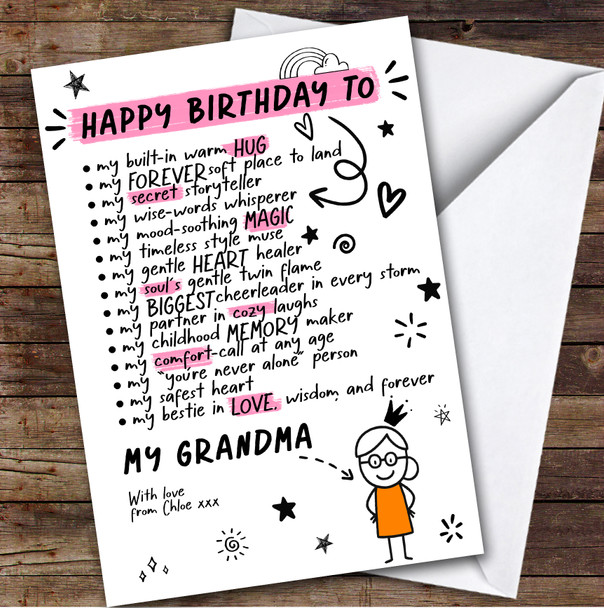 HAPPY BIRTHDAY TO
• my built-in warm HUG
• my FOREVER soft place to land
• my secret storyteller
• my wise-words whisperer
• my mood-soothing MAGIC
• my timeless style muse
• my gentle HEART healer
• my soul's gentle twin flame
• my BIGGEST cheerleader in every storm
• my partner in cozy laughs
• my childhood MEMORY maker
• my comfort-call at any age
• my "you're never alone" person
• my safest heart
• my bestie in LOVE, wisdom, and forever
MY GRANDMA
With love
from Chloe xxx